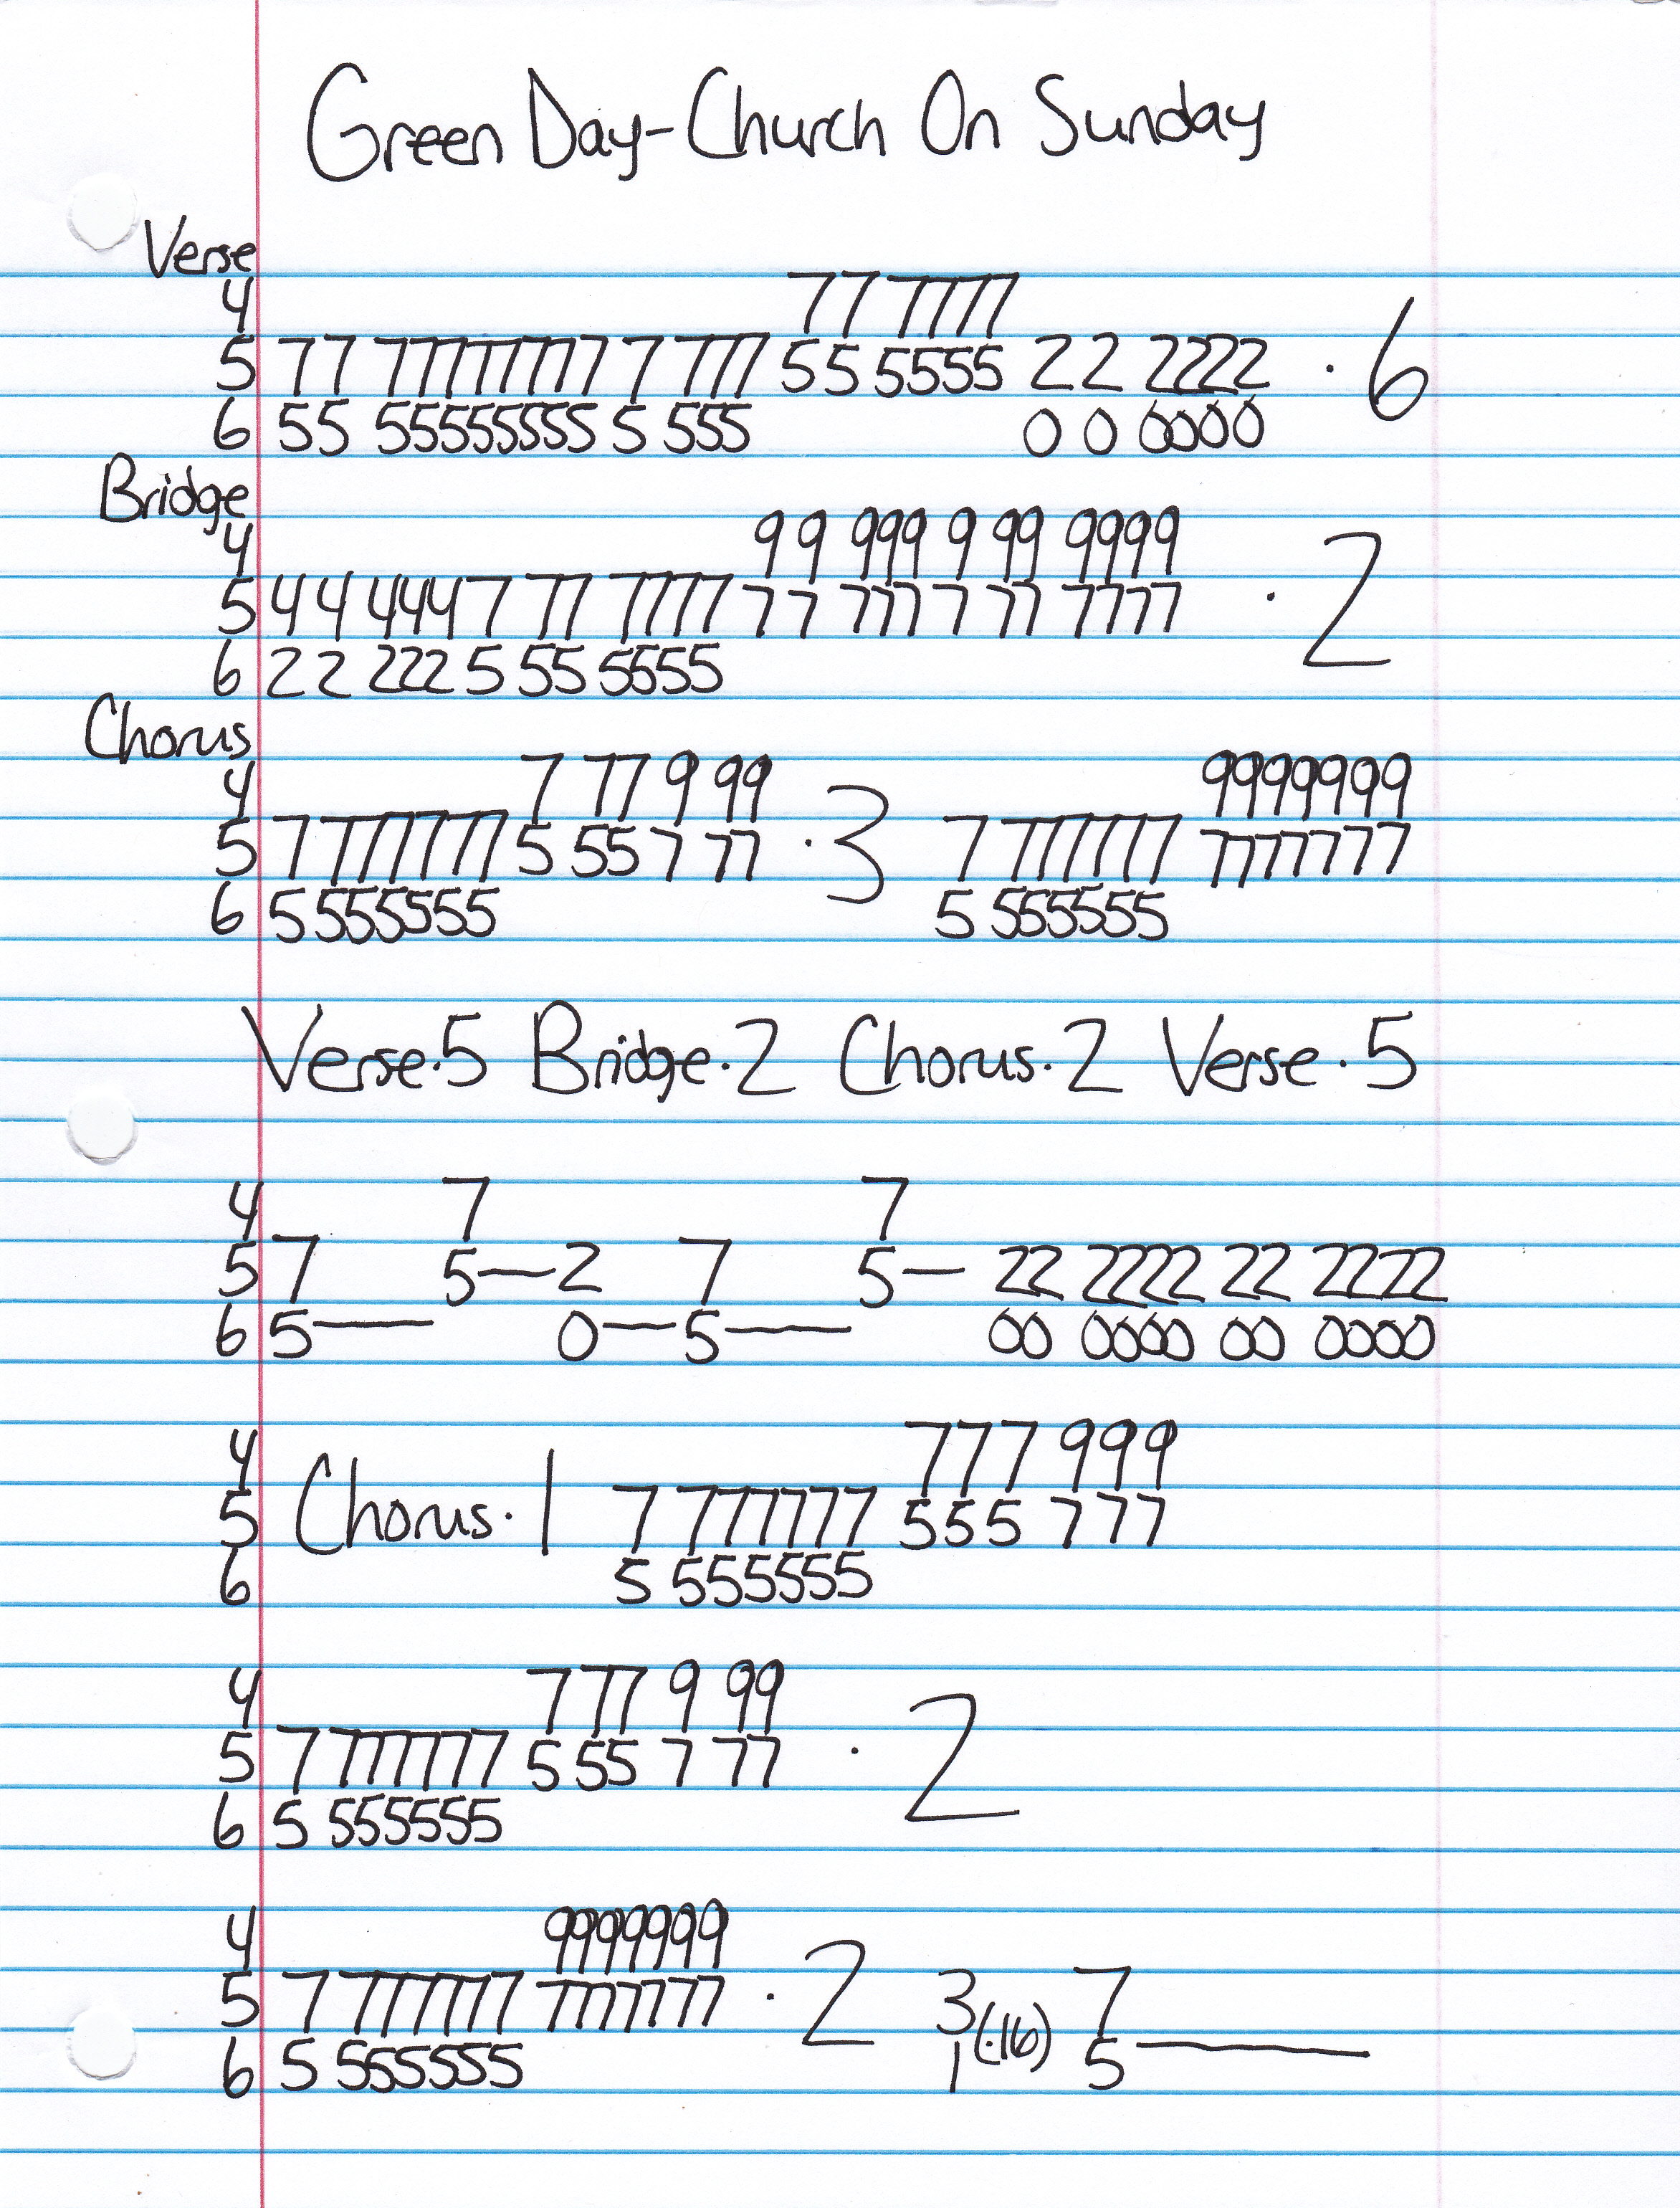 Green Day-Church On Sunday
Verse
4 77 7777
5 77 77777777 7 777 55 5555 22 2222 · 6
6 55 55555555 5 555 0 0 0000
Bridge
4 99 999 9 99 9999
5 44 4447 77 7777 77 777 7 77 7777 · 2
6 22 2225 55 5555
Chorus
4 7 77 9 99 9999999
5 7 777777 5 55 7 77 ·3 7 777777 7777777
6 5 555555 5 555555
Verse·5 Bridge·2 Chorus·2 Verse·5
4 7 7
5 7 5—2 7 5— 22 2222 22 2222
6 5— 0—5— 00 0000 00 0000
4 777 999
5 Chorus·1 7 777777 555 777
6 5 555555
4 7 77 9 99
5 7 777777 5 55 7 77 · 2
6 5 555555
4 9999999
5 7 777777 7777777 · 2 3(·16) 7
6 5 555555 1 5—